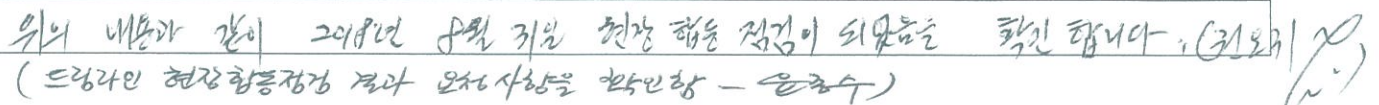 위의 내용과 같이 2018년 8월 31일 현장 합동 점검이 되었음을 확인 합니다.
(드림라인 현장합동점검 결과 요청사항을 확인함 -